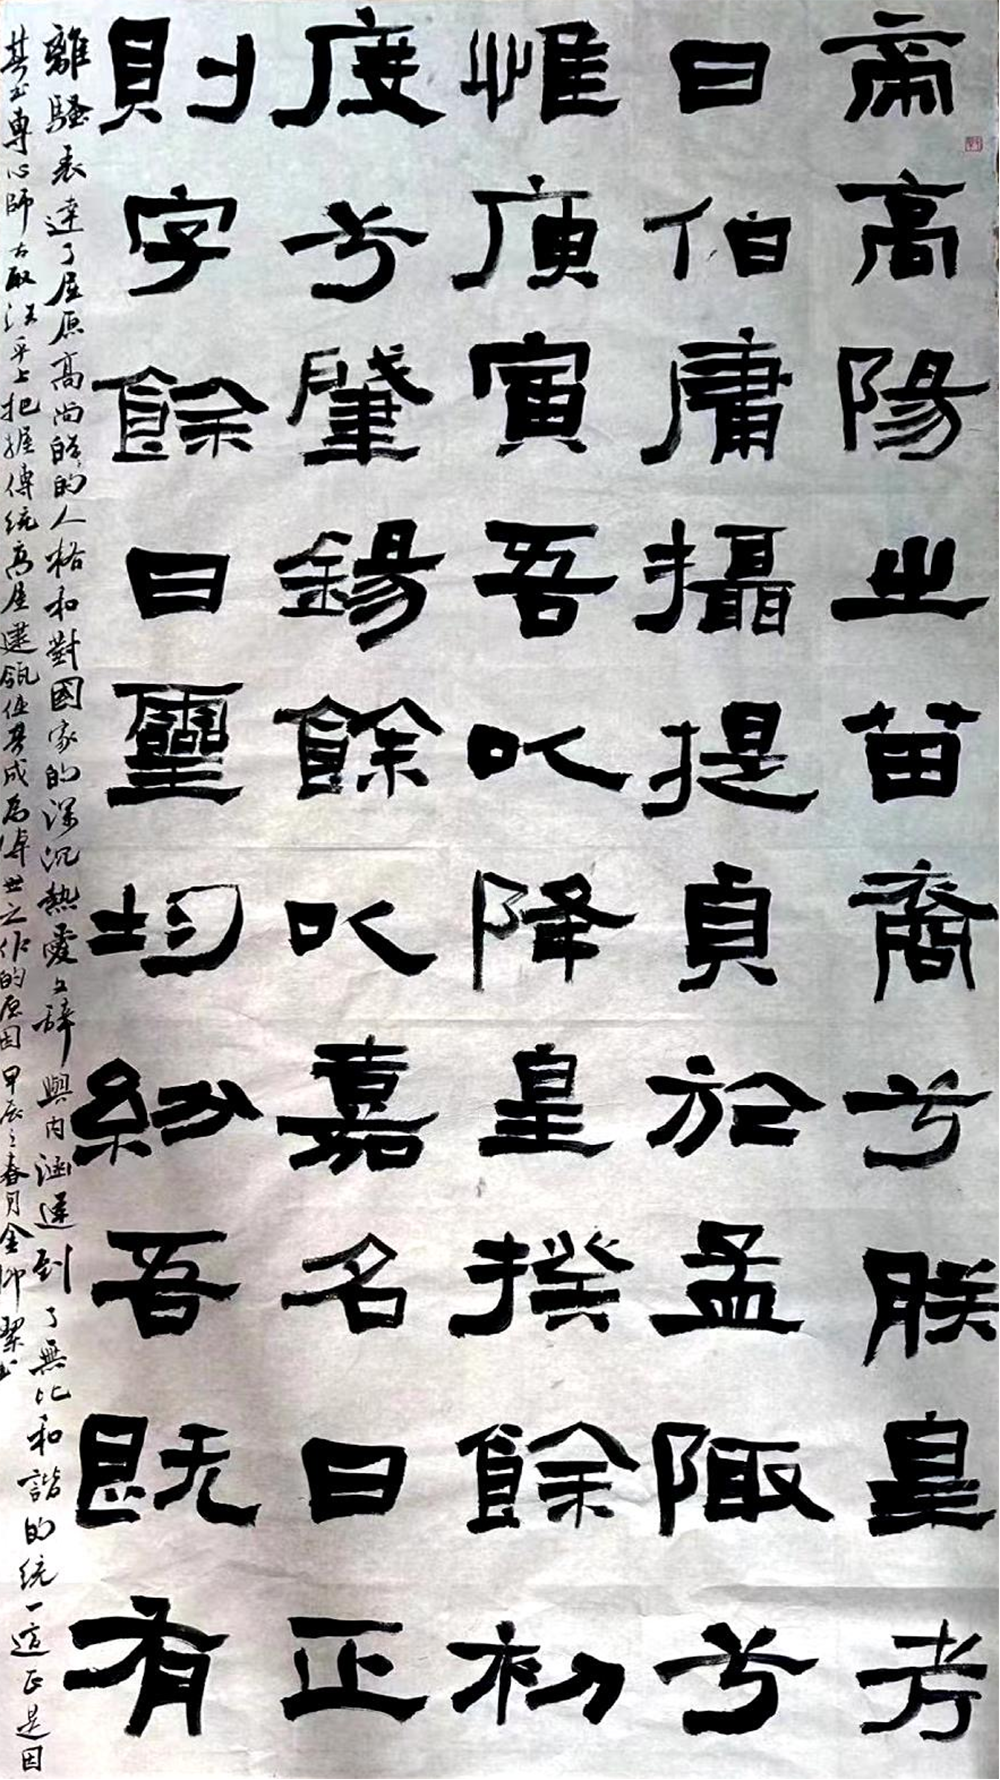 帝高陽之苗裔兮朕皇考
曰伯庸攝提貞於孟陬兮
惟庚寅吾以降皇揆餘初
度兮肇錫餘以嘉名曰正
則字餘曰靈均紛吾既有
離騷表達了屈原高尚的人格和對國家的深沉熱愛文辭與內涵達到了無比和諧的統一這正是因
其書專心師古取法乎上把握傳統高屋建瓴使其成為傳世之作的原因甲辰之春月金